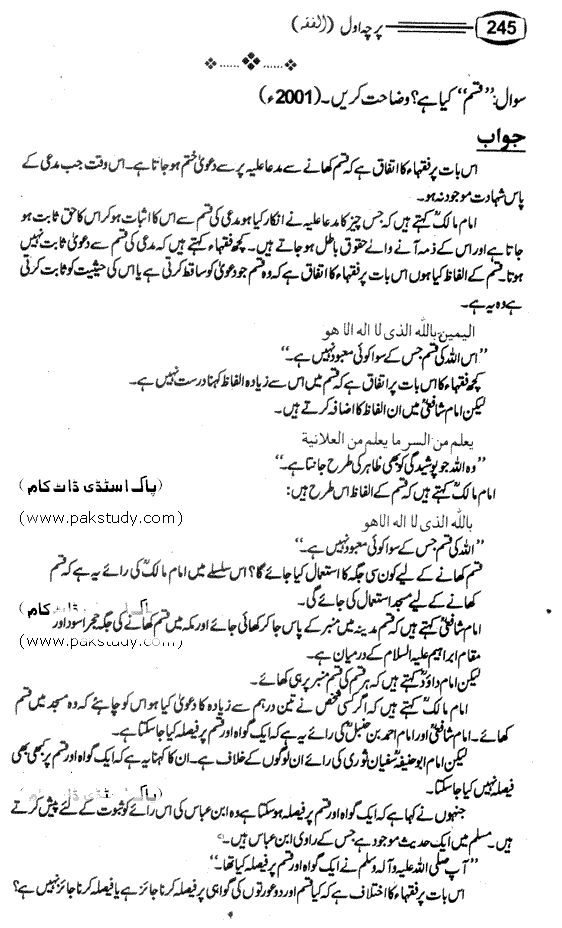 پرچہ اول (الفقہ) 245
سوال: "قسم" کیا ہے؟ وضاحت کریں۔ (2001ء)
جواب
اس بات پر فقہاء کا اتفاق ہے کہ قسم کھانے سے مدعا علیہ پر سے دعویٰ ختم ہو جاتا ہے۔ اس وقت جب مدعی کے
پاس شہادت موجود نہ ہو۔
امام مالکؒ کہتے ہیں کہ جس چیز کا مدعا علیہ نے انکار کیا ہو مدعی کی قسم سے اس کا اثبات ہو کر اس کا حق ثابت ہو
جاتا ہے اور اس کے ذمہ آنے والے حقوق باطل ہو جاتے ہیں۔ کچھ فقہاء کہتے ہیں کہ مدعی کی قسم سے دعویٰ ثابت نہیں
ہوتا۔ قسم کے الفاظ کیا ہوں اس بات پر فقہاء کا اتفاق ہے کہ وہ قسم جو دعویٰ کو ساقط کرتی ہے یا اس کی حیثیت کو ثابت کرتی
ہے وہ یہ ہے۔
الیمین باللہ الذی لا الہ الا ھو
"اس اللہ کی قسم جس کے سوا کوئی معبود نہیں ہے۔"
کچھ فقہاء کا اس بات پر اتفاق ہے کہ قسم میں اس سے زیادہ الفاظ کہنا درست نہیں ہے۔
لیکن امام شافعیؒ میں ان الفاظ کا اضافہ کرتے ہیں۔
یعلم من السر ما یعلم من العلانیة
"وہ اللہ جو پوشیدگی کو بھی ظاہر کی طرح جانتا ہے۔"
امام مالکؒ کہتے ہیں کہ قسم کے الفاظ اس طرح ہیں: (پاک اسٹڈی ڈاٹ کام)
(www.pakstudy.com)
باللہ الذی لا الہ الاھو
"اللہ کی قسم جس کے سوا کوئی معبود نہیں ہے۔"
قسم کھانے کے لیے کون سی جگہ کا استعمال کیا جائے گا؟ اس سلسلے میں امام مالکؒ کی رائے یہ ہے کہ قسم
کھانے کے لیے مسجد استعمال کی جائے گی۔ ڈاٹ کام)
امام شافعیؒ کہتے ہیں کہ قسم مدینہ میں منبر کے پاس جا کر کھائی جائے اور مکہ میں قسم کھانے کی جگہ حجر اسود اور
مقام ابراہیم علیہ السلام کے درمیان ہے۔ (www.pakstudy.com)
لیکن امام داؤدؒ کہتے ہیں کہ ہر قسم کی قسم منبر پر ہی کھائے۔
امام مالکؒ کہتے ہیں کہ اگر کسی شخص نے تین درہم سے زیادہ کا دعویٰ کیا ہو اس کو چاہئے کہ وہ مسجد میں قسم
کھائے۔ امام شافعیؒ اور امام احمد بن حنبلؒ کی رائے یہ ہے کہ ایک گواہ اور قسم پر فیصلہ کیا جا سکتا ہے۔
لیکن امام ابو حنیفہؒ سفیان ثوری کی رائے ان لوگوں کے خلاف ہے۔ ان کا کہنا یہ ہے کہ ایک گواہ اور قسم پر کبھی بھی
فیصلہ نہیں کیا جا سکتا۔
جنہوں نے کہا ہے کہ ایک گواہ اور قسم پر فیصلہ ہو سکتا ہے وہ ابن عباس کی اس رائے کو ثبوت کے لئے پیش کرتے
ہیں۔ مسلم میں ایک حدیث موجود ہے جس کے راوی ابن عباس ہیں۔
"آپ صلی اللہ علیہ وآلہ وسلم نے ایک گواہ اور قسم پر فیصلہ کیا تھا۔"
اس بات پر فقہاء کا اختلاف ہے کہ کیا قسم اور دو عورتوں کی گواہی پر فیصلہ کرنا جائز ہے یا فیصلہ کرنا جائز نہیں ہے؟